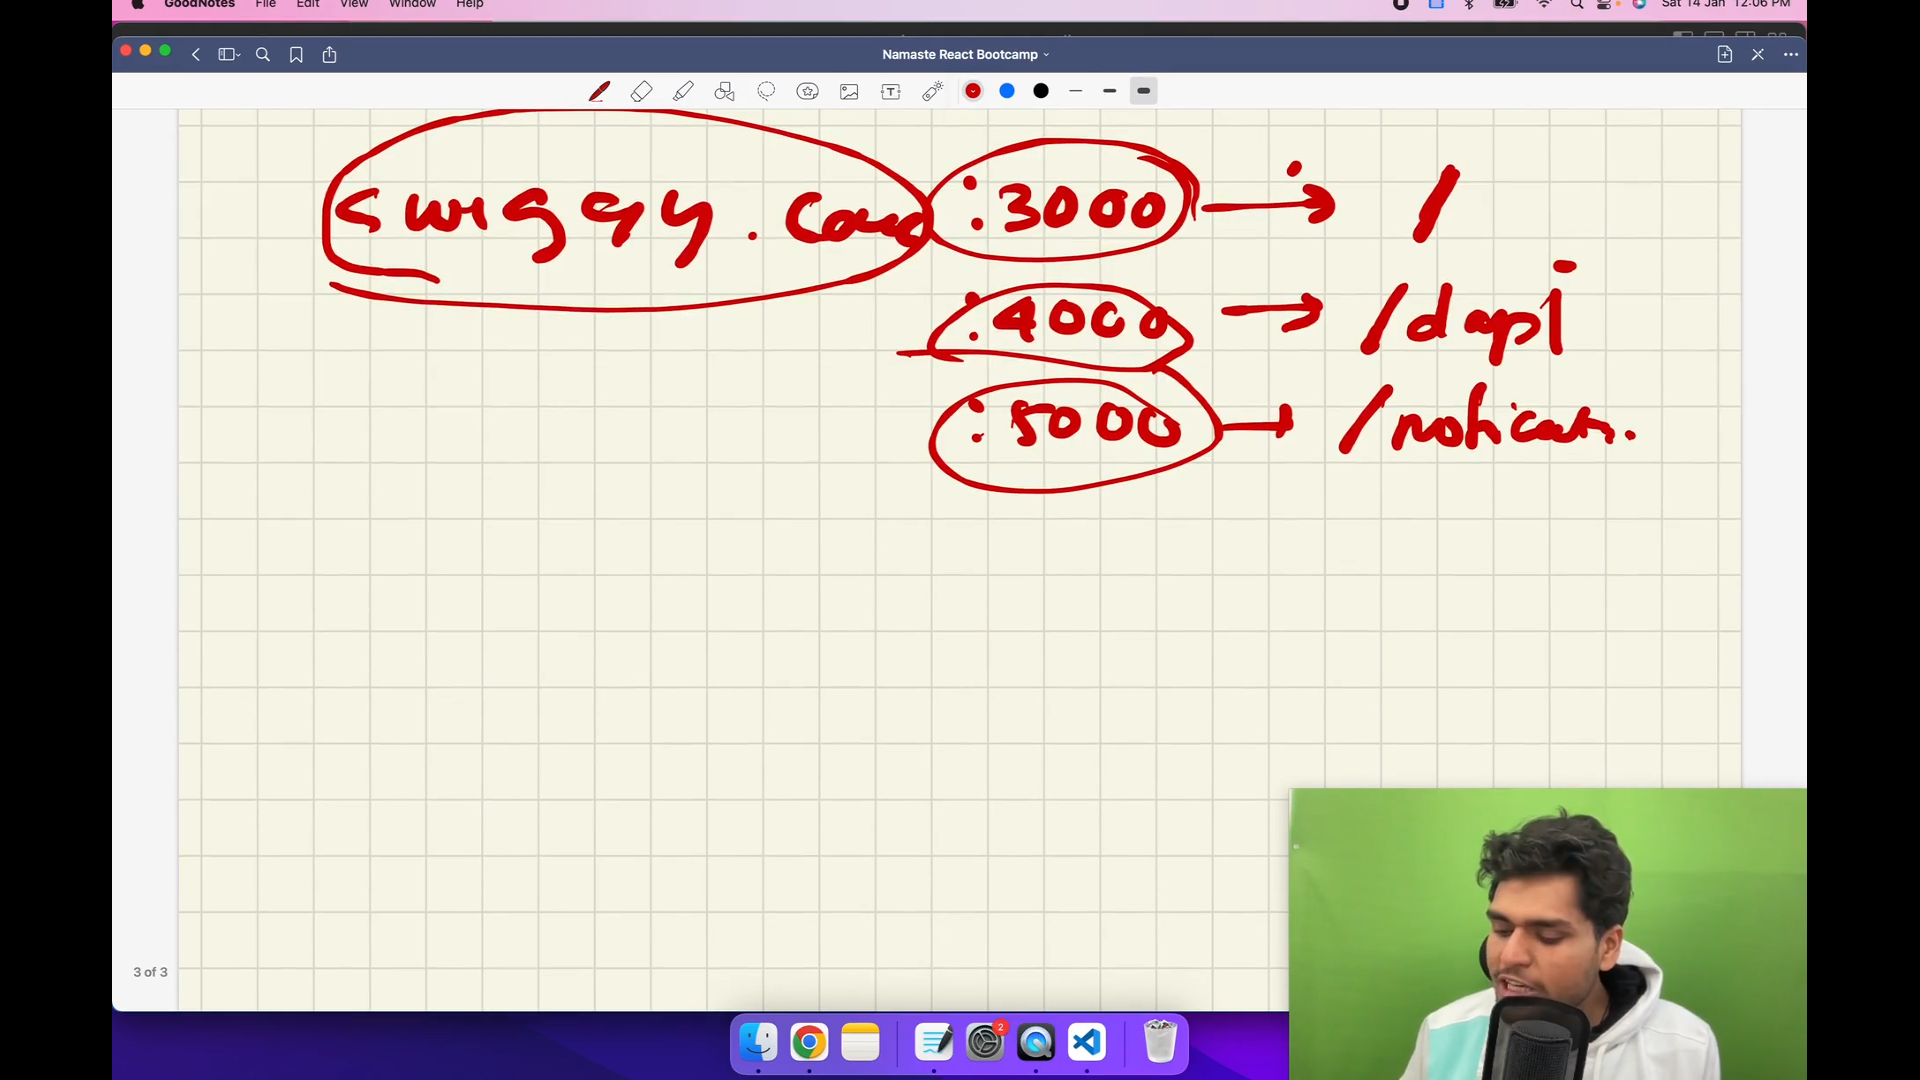 GoodNotes File Edit View Window Help Sat 14 Jan 12:06 PM
Namaste React Bootcamp
swiggy.com :3000 → /
:4000 → /dapi
:5000 → /
3 of 3
2